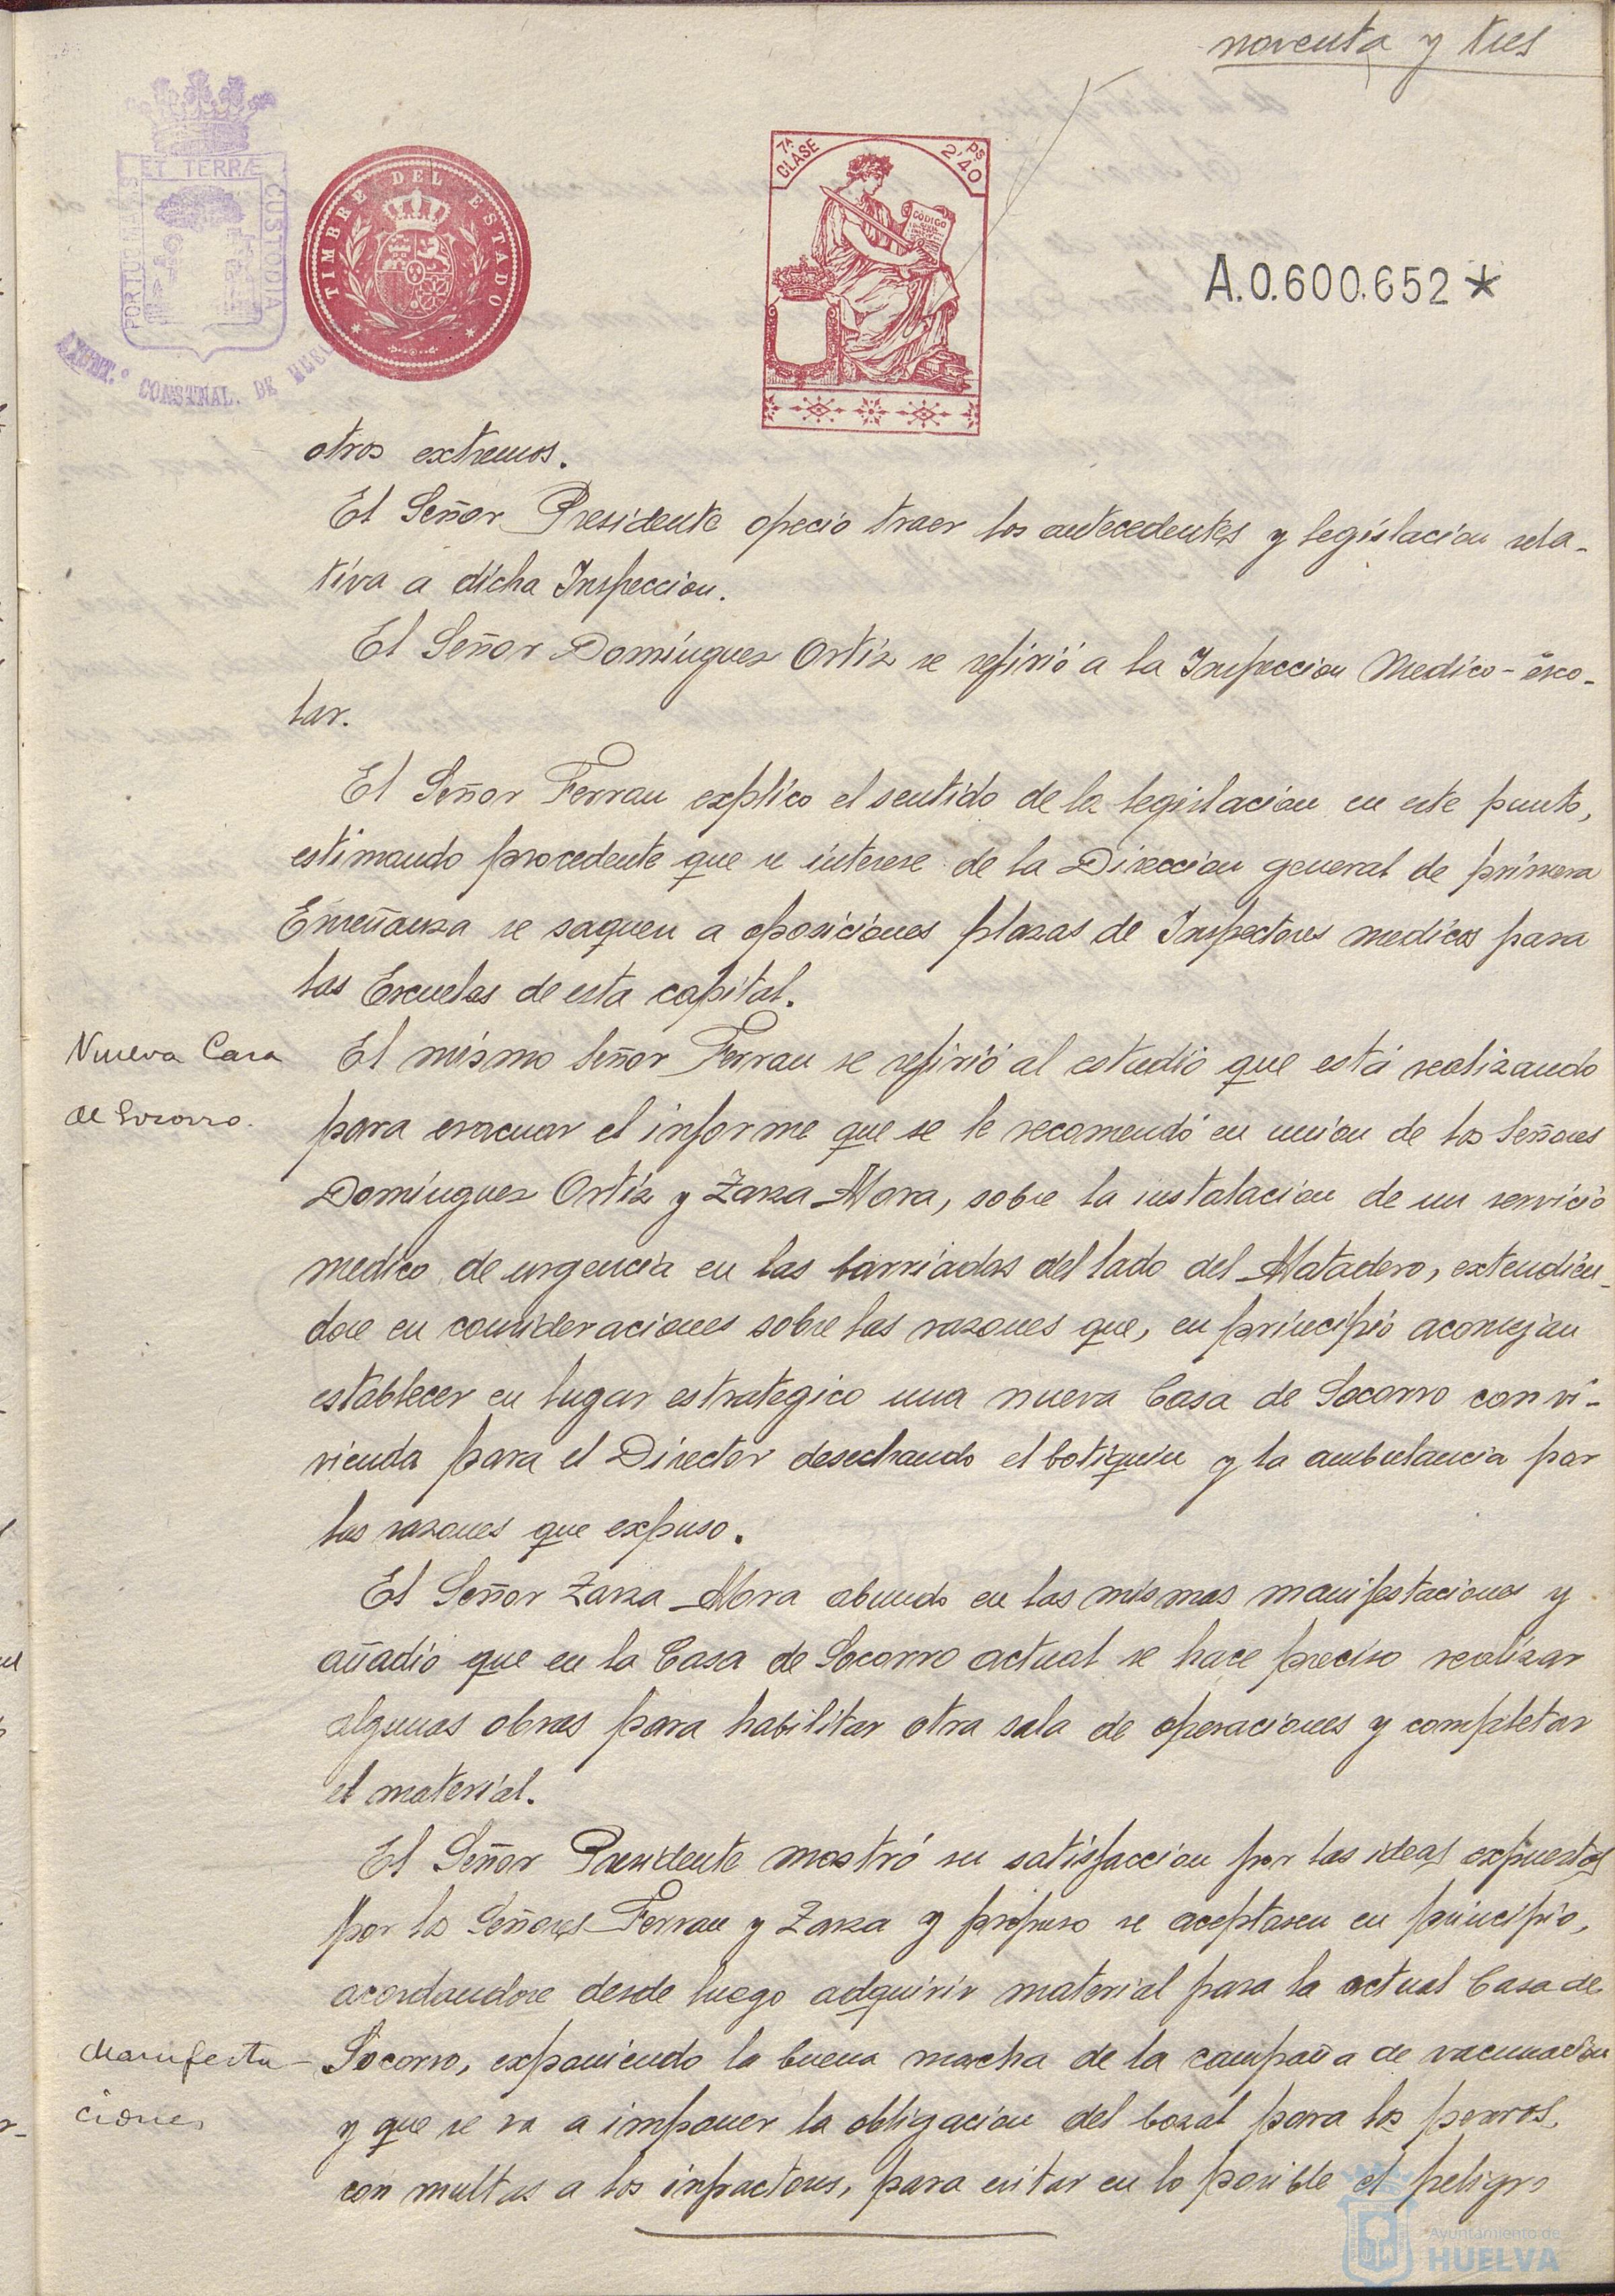 noventa y tres
PORTUS MARIS
ET TERRÆ
CUSTODIA
AYUNT.º CONSTNAL. DE HUEL
TIMBRE DEL ESTADO
7ª CLASE
Ps 2'40
CÓDIGO
A.0.600.652*
otros extremos.
El Señor Presidente ofrecio traer los antecedentes y legislacion rela-
tiva a dicha Inspeccion.
El Señor Dominguez Ortiz se refirió a la Inspeccion Medico-esco-
lar.
El Señor Terrau explico el sentido de la legislacion en este punto,
estimando procedente que se interese de la Direccion general de primera
Enseñanza se saquen a oposiciones plazas de Inspectores medicos para
las Escuelas de esta capital.
Nueva Casa
de Socorro.
El mismo Señor Terrau se refirió al estudio que está realizando
para evacuar el informe que se le recomendó en union de los Señores
Dominguez Ortiz y Zarza Mora, sobre la instalacion de un servicio
medico de urgencia en las barriadas del lado del Matadero, extendien-
dose en consideraciones sobre las razones que, en principio aconsejan
establecer en lugar estrategico una nueva Casa de Socorro con vi-
vienda para el Director desechando el botiquin y la ambulancia por
las razones que expuso.
El Señor Zarza Mora abundo en las mismas manifestaciones y
añadió que en la Casa de Socorro actual se hace preciso realizar
algunas obras para habilitar otra sala de operaciones y completar
el material.
El Señor Presidente mostró su satisfaccion por las ideas expuestas
por los Señores Terrau y Zarza y propuso se aceptasen en principio,
acordandose desde luego adquirir material para la actual Casa de
Manifesta-
ciones
Socorro, exponiendo la buena marcha de la campaña de vacunacion
y que se va a imponer la obligacion del bozal para los perros,
con multas a los infractores, para evitar en lo posible el peligro
Ayuntamiento de
HUELVA